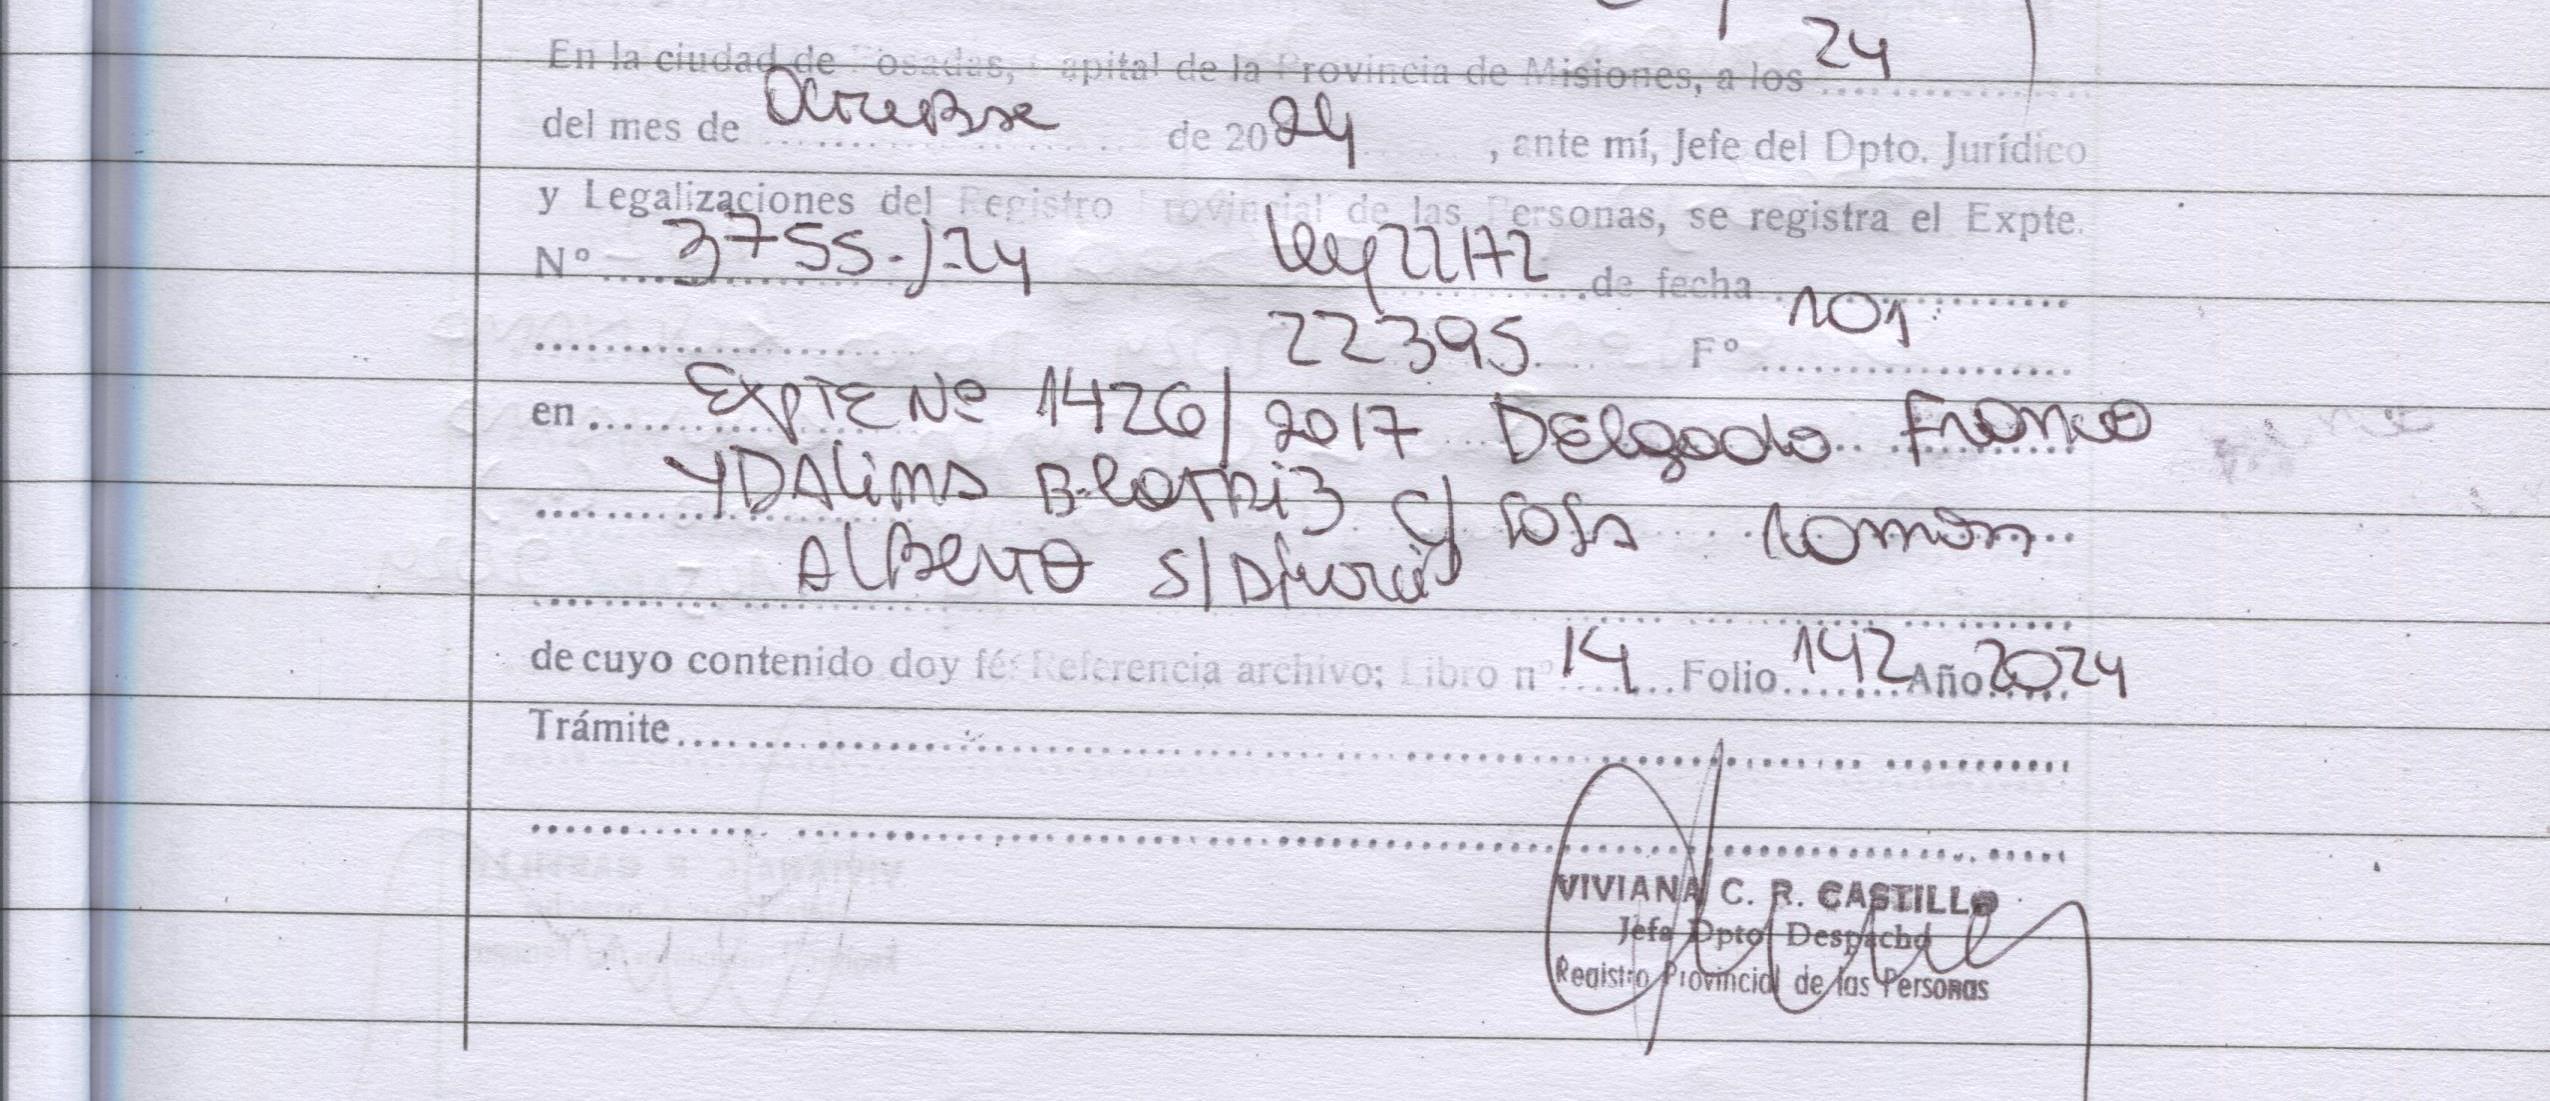 En la ciudad de Posadas, Capital de la Provincia de Misiones, a los 24
del mes de Octubre de 2024, ante mí, Jefe del Dpto. Jurídico
y Legalizaciones del Registro Provincial de las Personas, se registra el Expte.
Nº 3755-J-24 Ley 22172 de fecha
22395 Fº 101
en Expte Nº 1426/2017 Delgado Franco
Ydalina Beatriz c/ Sosa Ramon
Alberto s/ Divorcio
de cuyo contenido doy fé: Referencia archivo: Libro nº 14 Folio 142 Año 2024
Trámite
VIVIANA C. R. CASTILLO
Jefa Dpto Despacho
Registro Provincial de las Personas